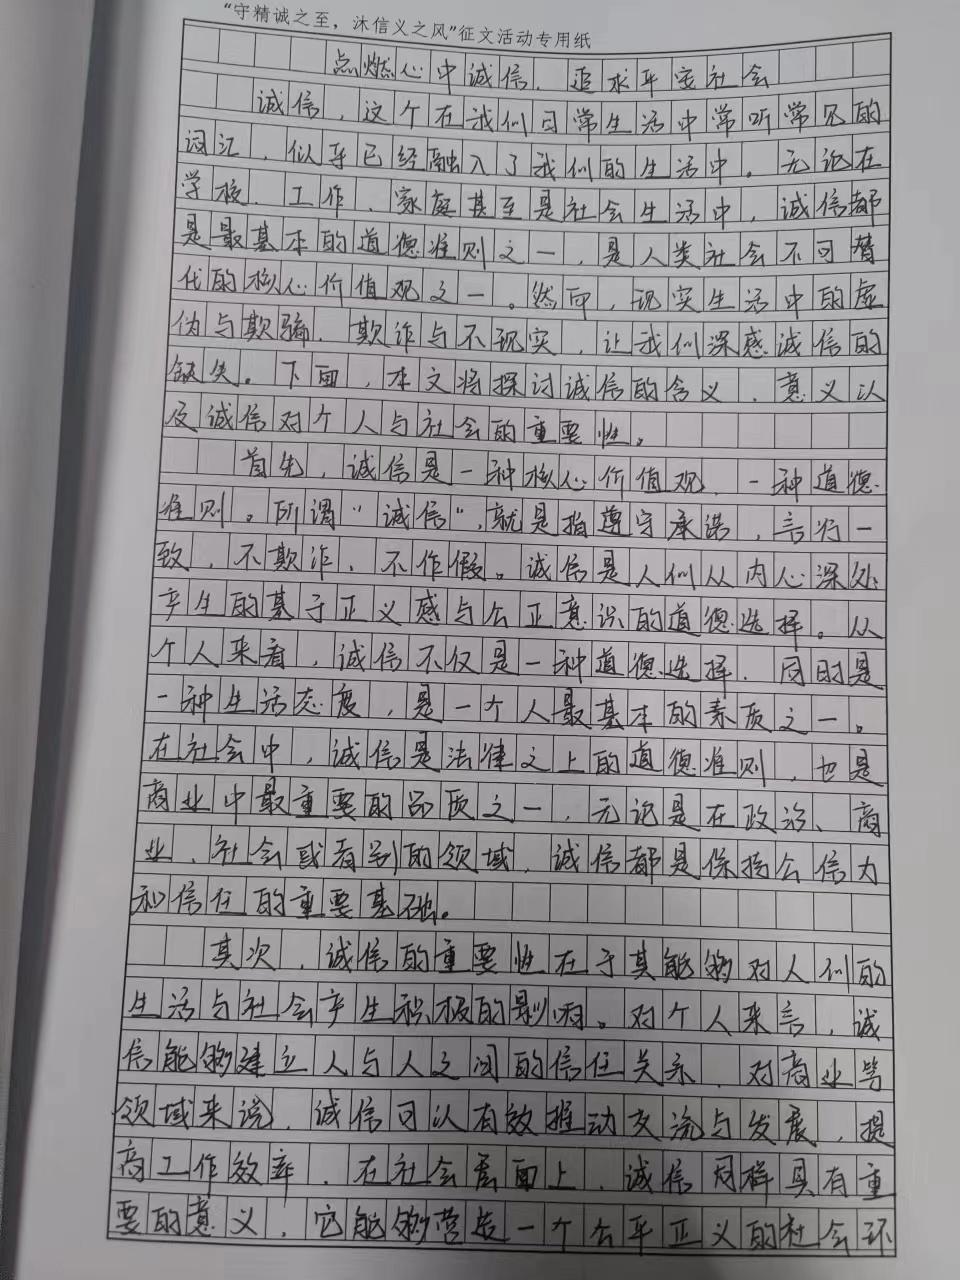 “守精诚之至，沐信义之风”征文活动专用纸
点燃心中诚信，追求平安社会
诚信，这个在我们日常生活中常听常见的
词汇，似乎已经融入了我们的生活中。无论在
学校、工作、家庭甚至是社会生活中，诚信都
是最基本的道德准则之一，是人类社会不可替
代的核心价值观之一。然而，现实生活中的虚
伪与欺骗，欺诈与不现实，让我们深感诚信的
缺失。下面，本文将探讨诚信的含义、意义以
及诚信对个人与社会的重要性。
首先，诚信是一种核心价值观，一种道德
准则。所谓“诚信”，就是指遵守承诺，言行一
致，不欺诈、不作假。诚信是人们从内心深处
产生的基于正义感与公正意识的道德选择。从
个人来看，诚信不仅是一种道德选择，同时是
一种生活态度，是一个人最基本的素质之一。
在社会中，诚信是法律之上的道德准则，也是
商业中最重要的品质之一，无论是在政治、商
业、社会或者别的领域，诚信都是保持公信力
和信任的重要基础。
其次，诚信的重要性在于其能够对人们的
生活与社会产生积极的影响。对个人来言，诚
信能够建立人与人之间的信任关系，对商业等
领域来说，诚信可以有效推动交流与发展，提
高工作效率，在社会层面上，诚信同样具有重
要的意义，它能够营造一个公平正义的社会环